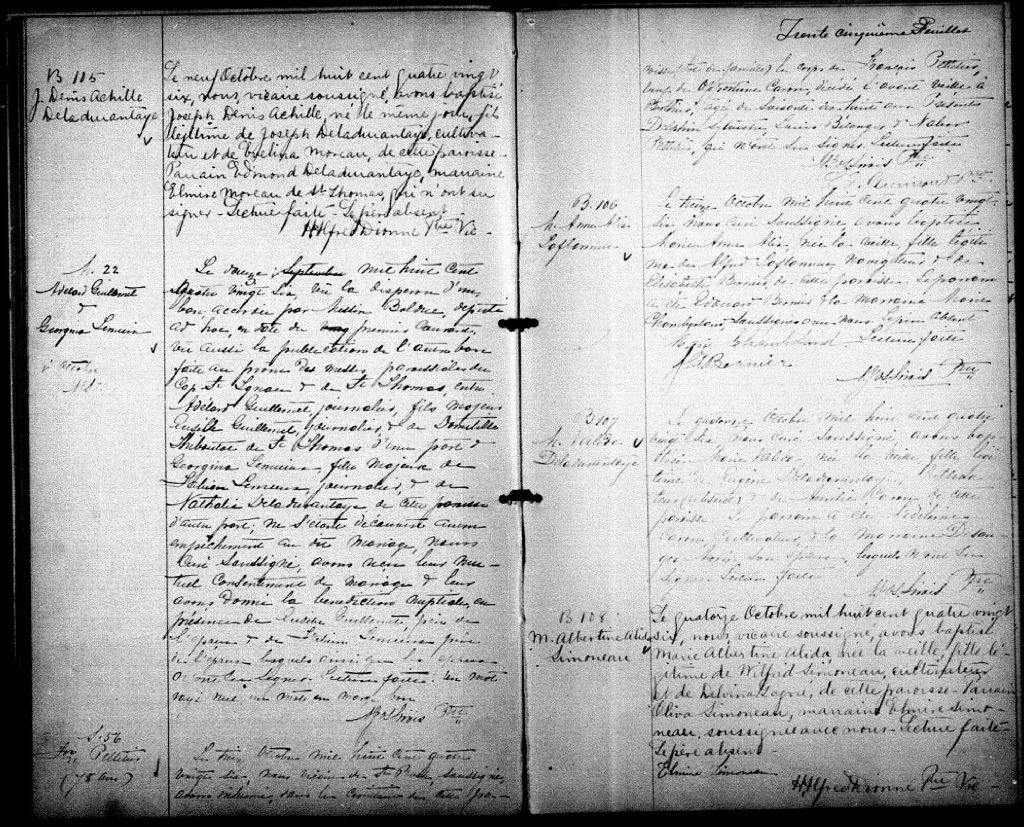 B 105
J. Denis Achille
Deladurantaye
Le neuf Octobre mil huit cent quatre vingt
six, nous, vicaire soussigné, avons baptisé
Joseph Denis Achille, né le même jour, fils
légitime de Joseph Deladurantaye, cultiva-
teur et de Evelina Moreau, de cette paroisse.
Parrain Edmond Deladurantaye, marraine
Elmire Moreau de St Thomas, qui n'ont su
signer. Lecture faite. Le père absent.
HAlfred Dionne Ptre Vic
M. 22
Adélard Guillemet
&
Georgina Lemieux
Le douze Septembre mil huit cent
quatre vingt six, vu la dispense d'un
ban, accordée par Messire Bolduc, député
ad hoc, en date du premier courant,
vu aussi la publication de l'autre ban
faite au prône des messes paroissiales du
Cap St Ignace & de St Thomas, entre
Adélard Guillemet, journalier, fils majeur
Eusèbe Guillemet, journalier, & de Domitille
Thiboutot de St Thomas d'une part &
Georgina Lemieux fille majeure de
Lemieux, journalier, & de
Nathalie Deladurantaye de cette paroisse
d'autre part: ne s'étant découvert aucun
empêchement au dit mariage, nous
Curé Soussigné, avons reçu leur mu-
tuel Consentement de mariage & leur
avons donné la bénédiction nuptiale, en
présence de Eusèbe Guillemet, père de
l'époux & de Lemieux père
de l'épouse lesquels ainsi que les époux
Lecture faite. un mot
rayé nul, un mots en marge bon
Ptre
S. 56
Frs Pelletier
(78 ans)
Le treize Octobre mil huit cent quatre
vingt six, nous soussigné,
avons inhumé, dans le cimetière de cette pa-
Trente cinquième Feuillet
le corps de François Pelletier,
Caron, décédé l'avant veille à
âgé de soixante dix huit ans Présents
Delphin Sylvestre, Louis Bélanger, & Nabor
Pelletier, qui n'ont su signer. Lecture faite
Ptre
B. 106
M. Anna Alia
Laflamme
Le treize Octobre mil huit cent quatre vingt-
six, nous Curé Soussigné, avons baptisé
Marie Anna Alia, née la veille, fille légiti
me de Alfred Laflamme, Navigateur & de
Elisabeth Bernier de cette paroisse. Le parrain
a été Edouard Bernier & la marraine Marie
Chamberland, Soussignés avec nous. Le père absent
Marie Chamberland Lecture faite
Bernier
Ptre
B 107
M.
Deladurantaye
Le quatorze Octobre mil huit cent quatre
vingt six, nous Curé Soussigné, avons bap-
tisé Marie née la veille, fille légi
time Eugène Deladurantaye, Cultiva
teur (absent) & de Aurélie Caron de cette
paroisse. Le parrain a été
Caron, Cultivateur, & la marraine
son épouse, lesquels n'ont su
signer Lecture faite
Ptre
B 108
M. Albertine Alida
Simoneau
Le quatorze Octobre mil huit cent quatre vingt
six, nous, vicaire soussigné, avons baptisé
Marie Albertine Alida, née la veille, fille lé-
gitime de Wilfrid Simoneau, cultivateur
et de Delvina Gagné, de cette paroisse. Parrain
Oliva Simoneau, marraine Elmire Simo-
neau, soussignée avec nous. Lecture faite.
Le père absent.
Elmire Simoneau
HAlfred Dionne Ptre Vic